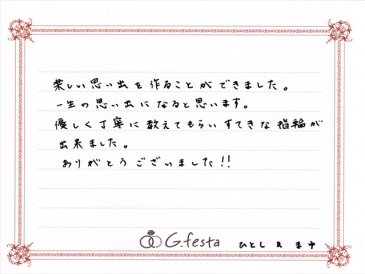 楽しい思い出を作ることができました。
一生の思い出になると思います。
優しく丁寧に教えてもらいすてきな指輪が
出来ました。
ありがとうございました!!
G.festa
ひとし